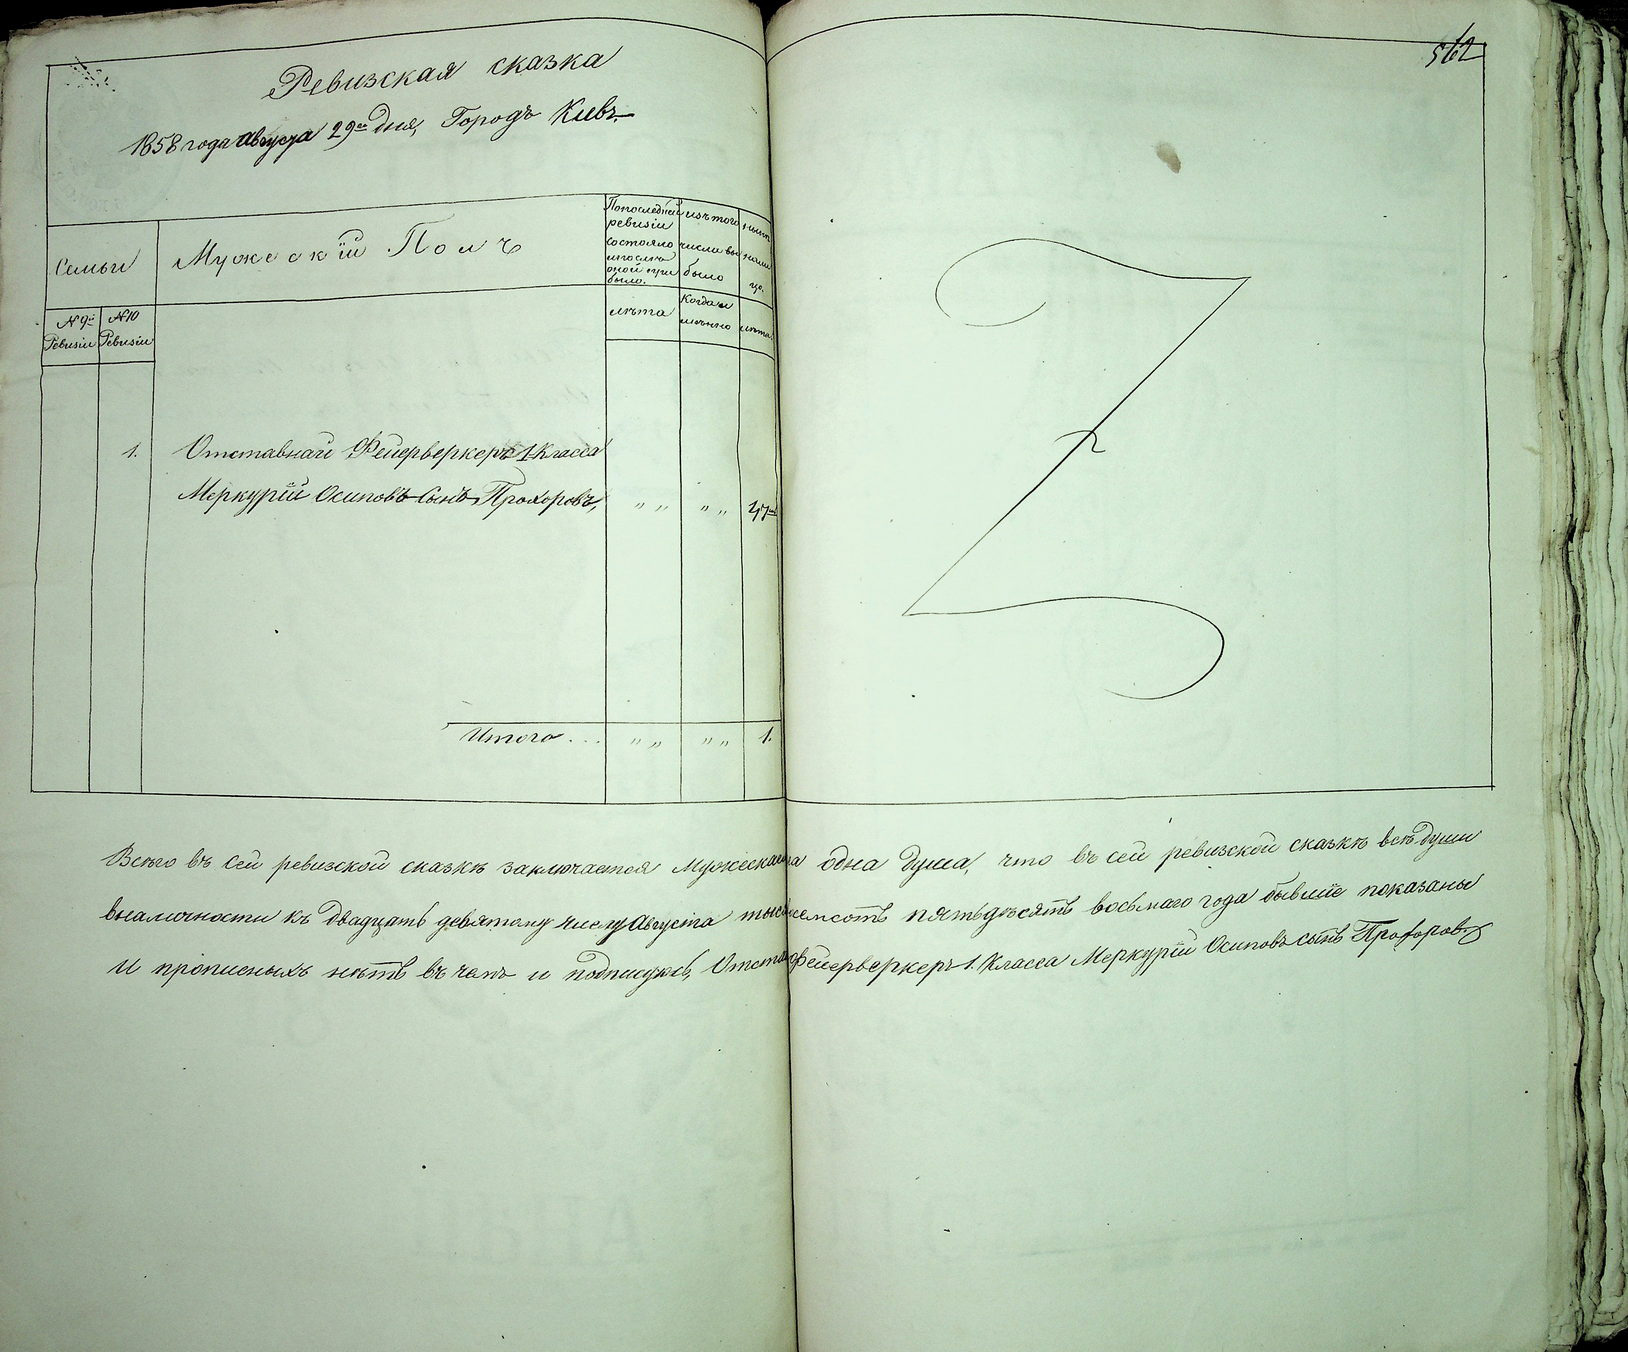 562
Ревизская сказка
1858 года августа 29го дня, Городъ Кіевъ
Семьи
Мужескій Полъ
По последней
ревизіи
состояло
и после
оной при
было.
изъ того
числа вы
было
ныне
на ли
це.
№ 9й
Ревизіи
№ 10
Ревизіи
лѣта
Когда и
имѣнно
лѣта
1.
Отставнай Фейерверкеръ 1 Класса
Меркурій Осиповъ Сынъ Прохоровъ, " " " " 47
Итого . . . " " " " 1.
Всего въ сей ревизской сказкѣ заключается Мужеска одна душа, что въ сей ревизской сказкѣ всѣ души
вналичности къ двадцать девятому числу Августа пятьдесятъ восьмаго года бывшіе показаны
и прописныхъ нѣтъ въ чемъ и подписуюсь, Фейерверкеръ 1. Класса Меркурій Осиповъ сынъ Прохоровъ